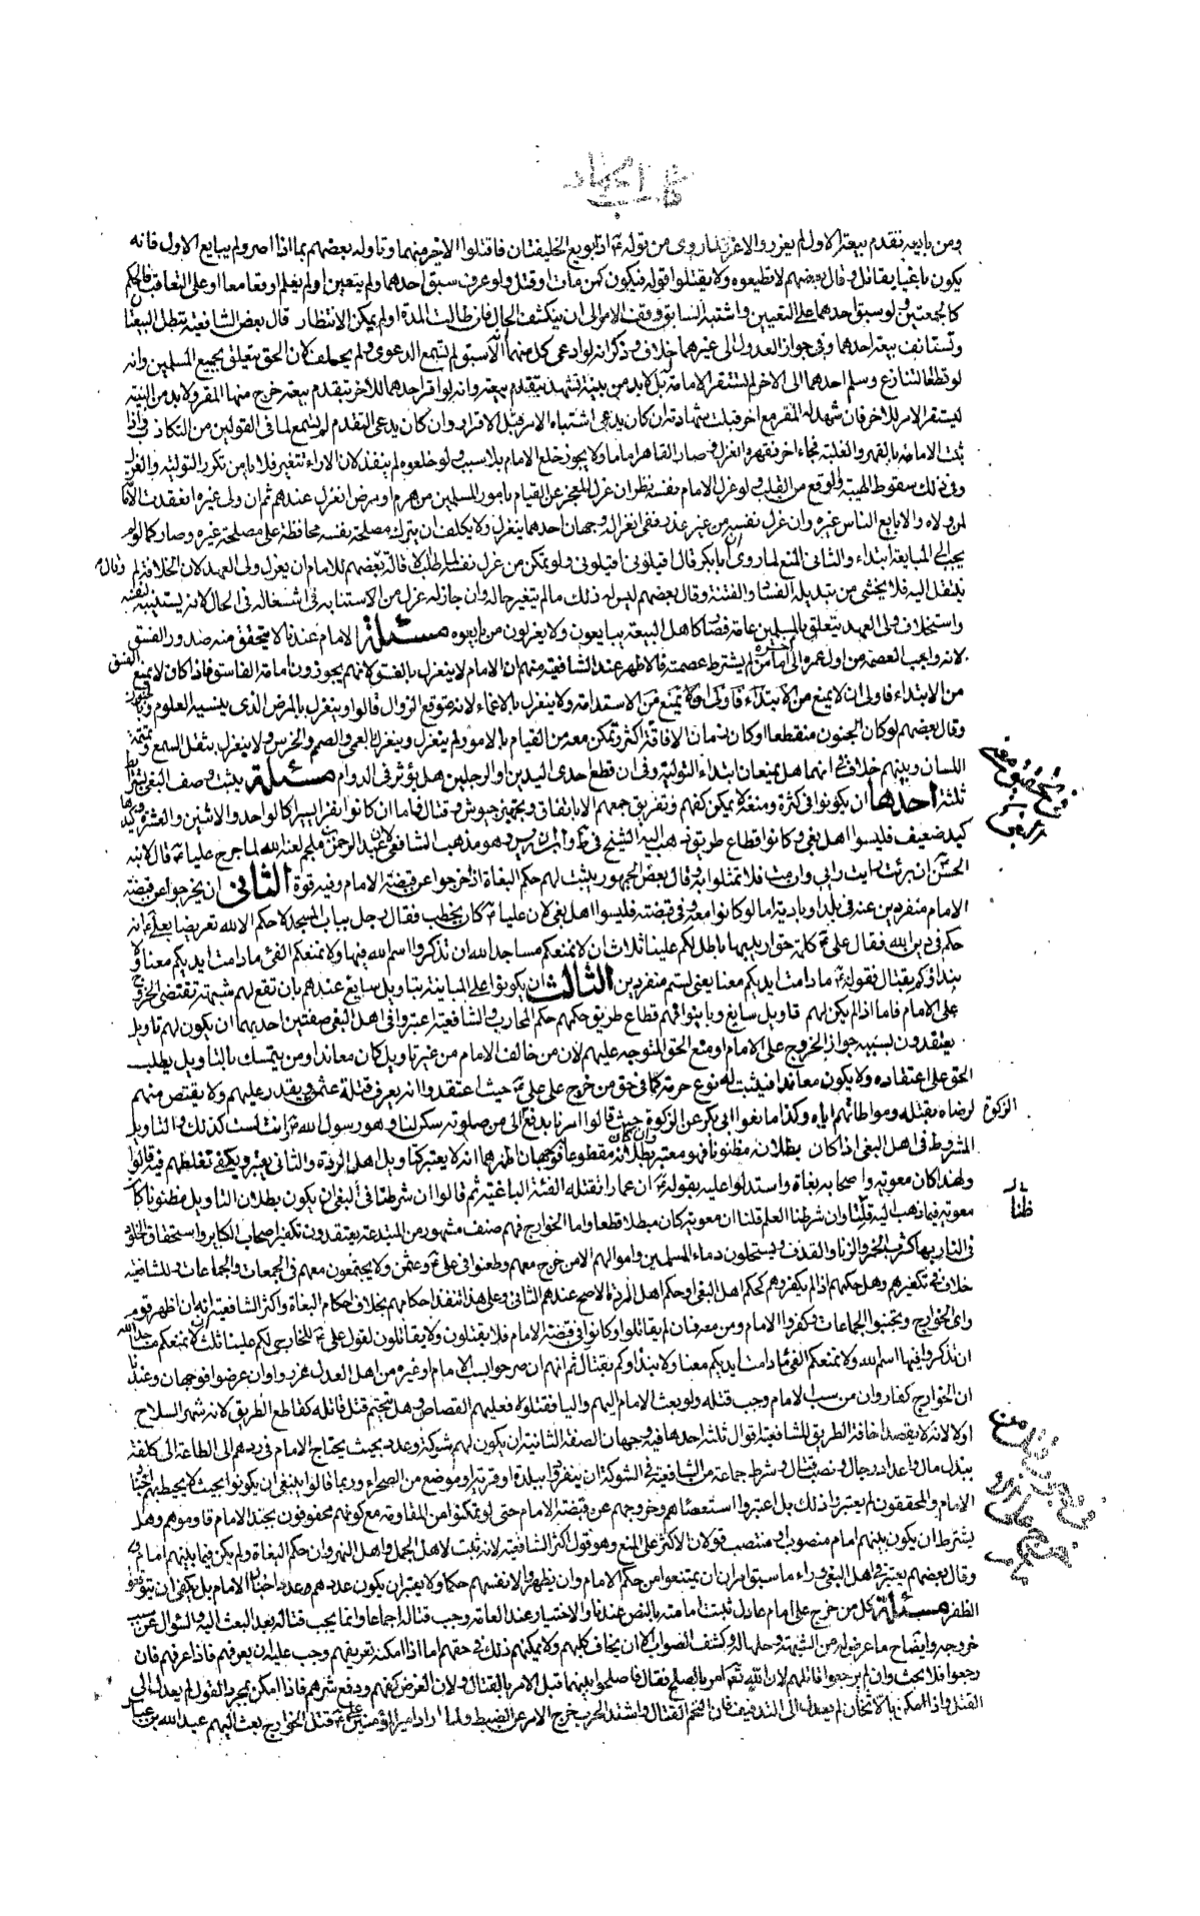 كتاب الجهاد
ومن بايع بتقدم بيعة الاول لم يعزر والا عزر لما روى من قوله ع اذا بويع الخليفتان فاقتلوا الاخر منهما وتاوله بعضهم بما اذا اصر ولم يبايع الاول فانه
يكون باغيا يقاتل وقال بعضهم لا تطيعوه ولا يقتلوا قوله فيكون كمن مات او قتل ولو عرف سبق احدهما ولم يتعين او لم يعلم اوقعا معا او على التعاقب فالحكم
كالجمعتين ولو سبق احدهما على التعيين واشتبه السابق وقف الامر الى ان ينكشف الحال فان طالت المدة او لم يمكن الانتظار قال بعض الشافعية تبطل البيعتان
وتستانف بيعة احدهما وفى جواز العدول الى غيرهما خلاف وذكر انه لو ادعى كل منهما انه الاسبق لم تسمع الدعوى ولم يحلف لان الحق يتعلق بجميع المسلمين وانه
لو قطعا التنازع وسلم احدهما الى الاخر لم تستقر الامامة له بل لابد من بينة تشهد بتقدم بيعته وانه لو اقر احدهما للاخر بتقدم بيعته خرج منها المقر ولابد من البينة
ليستقر الامر للاخر فان شهد له المقر مع اخر قبلت شهادته ان كان يدعى اشتباه الامر قبل الاقرار وان كان يدعى التقدم لم تسمع لما فى القولين من التكاذب واذا
ثبت الامامة بالقهر والغلبة فجاء اخر فقهره انعزل وصار القاهر اماما ولا يجوز خلع الامام بلا سبب ولو خلعوه لم ينفذ لان الاراء تتغير فلا يامن تكرر التولية والعزل
وفى ذلك سقوط الهيبة والوقع من القلب ولو عزل الامام نفسه نظر ان عزل للعجز عن القيام بامور المسلمين من هرم او مرض انعزل عندهم ثم ان ولى غيره انعقدت الامامة
لمن ولاه والا بايع الناس غيره وان عزل نفسه من غير عذر ففى انعزاله وجهان احدهما ينعزل ولا يكلف ان يترك مصلحة نفسه محافظة على مصلحة غيره وصار كما لو لم
يجب الى المبايعة ابتداء والثانى المنع لما روى ان ابا بكر قال اقيلونى اقيلونى ولو تمكن من عزل نفسه لما طلب الاقالة بعضهم للامام ان يعزل ولى العهد لان الخلافة لم
ينتقل اليه فلا يخشى من تبديله الفساد والفتنة وقال بعضهم ليس له ذلك ما لم يتغير حاله وان جاز له عزل من الاستنابه فى اشغاله فى الحال لانه يستنيبه لنفسه
واستخلاف ولى العهد يتعلق بالمسلمين عامة فصار كاهل البيعة يبايعون ولا يعزلون من بايعوه مسئلة الامام عندنا لا يتحقق منه صدور الفسق
لانه واجب العصمة من اول عمره الى اخره اما من لم يشترط عصمته فالاظهر عند الشافعية منهم ان الامام لا ينعزل بالفسق لانهم يجوزون امامة الفاسق فاذا كان لا يمنع الفسق
من الابتداء فاولى ان لا يمنع من الاستدامة ولا ينعزل بالاغماء لانه متوقع الزوال قالوا وينعزل بالمرض الذى ينسيه العلوم وبالجنون
وقال بعضهم لو كان الجنون منقطعا وكان زمان الافاقة اكثر وتمكن معه من القيام بالامور لم ينعزل وينعزل بالعمى والصمم والخرس ولا ينعزل بثقل السمع وتمتمة
اللسان وبينهم خلاف فى انهما هل يمنعان ابتداء التولية وفى ان قطع احدى اليدين او الرجلين هل يؤثر فى الدوام مسئلة يثبت وصف البغى بشرائط
ثلثة احدها ان يكونوا فى كثرة ومنعة لا يمكن كفهم وتفريق جمعهم الا بانفاق وتجهيز جيوش وقتال فاما ان كانوا نفرا يسيرا كالواحد والاثنين والعشرة وكيدها
كيد ضعيف فليسوا اهل بغى وكانوا قطاع طريق ذهب اليه الشيخ فى ط وابن ادريس وهو مذهب الشافعى لان عبد الرحمن بن ملجم لعنه الله لما جرح عليا ع قال لابنه
الحسن ان برئت رايت رايى وان مت فلا تمثلوا به وقال بعض الجمهور يثبت لهم حكم البغاة اذا خرجوا عن قبضة الامام وفيه قوة الثانى ان يخرجوا عن قبضة
الامام منفردين عنه فى بلد او بادية اما لو كانوا معه وفى قبضته فليسوا اهل بغى لان عليا ع كان يخطب فقال رجل بباب المسجد لا حكم الا لله تعريضا بعلى ع انه
حكم فى دين الله فقال على ع كلمة حق اريد بها باطل لكم علينا ثلاث ان لا نمنعكم مساجد الله ان تذكروا اسم الله فيها ولا نمنعكم الفئ ما دامت ايديكم معنا ولا
نبداؤكم بقتال فقوله ع ما دامت ايديكم معنا يعنى لستم منفردين الثالث ان يكونوا على المباينة بتاويل سايغ عندهم بان تقع لهم شبهة تقتضى الخروج
على الامام فاما اذا لم يكن لهم تاويل سايغ وباينوا فهم قطاع طريق حكمهم حكم المحارب والشافعية اعتبروا فى اهل البغى صفتين احديهما ان يكون لهم تاويل
يعتقدون بسببه جواز الخروج على الامام او منع الحق المتوجه عليهم لان من خالف الامام من غير تاويل كان معاندا ومن يتمسك بالتاويل يطلب
الحق على اعتقاده ولا يكون معاندا فيثبت له نوع حرمة كما فى حق من خرج على على ع حيث اعتقدوا انه يعرف قتلة عثمن ويقدر عليهم ولا يقتص منهم
لرضاه بقتله ومواطاتهم اياه وكذا مانعوا ابى بكر عن الزكوة حيث قالوا امرنا بدفع الزكوة الى من صلوته سكن لنا وهو رسول الله ص وانت لست كذلك والتاويل
المشروط فى اهل البغى اذا كان بطلانه مظنونا فهو معتبر وان كان بطلانه مقطوعا فوجهان اظهرهما انه لا يعتبر كتاويل اهل الردة والثانى يعتبر ويكفى تغلطهم فيه قالوا
ولهذا كان معوية واصحابه بغاة واستدلوا عليه بقوله ع ان عمارا تقتله الفئة الباغية ثم قالوا ان شرطنا فى البغى ان يكون بطلان التاويل مظنونا كان
معوية فيما ذهب اليه ظنا وان شرطنا العلم قلنا ان معوية كان مبطلا قطعا واما الخوارج فهم صنف مشهور من المبتدعة يعتقدون تكفير اصحاب الكباير واستحقاق الخلود
فى النار بها كشرب الخمر والزنا والقذف ويستحلون دماء المسلمين واموالهم الا من خرج معهم وطعنوا فى على ع وعثمن ولا يجتمعون معهم فى الجمعات والجماعات وللشافعية
خلاف فى تكفيرهم وهل حكمهم اذا لم يكفروهم كحكم اهل البغى او حكم اهل الردة الاصح عندهم الثانى وعلى هذا تنفذ احكامهم بخلاف احكام البغاة واكثر الشافعية انه ان اظهر قوم
راى الخوارج وتجنبوا الجماعات وكفروا الامام ومن معه فان لم يقاتلوا وكانوا فى قبضة الامام فلا يقتلون ولا يقاتلون لقول على ع للخارجى لكم علينا ثلث لا نمنعكم مساجد الله
ان تذكروا فيها اسم الله ولا نمنعكم الفئ ما دامت ايديكم معنا ولا نبداؤكم بقتال ثم انهم ان صرحوا بسب الامام او غيره من اهل العدل عزروا وان عرضوا فوجهان وعندنا
ان الخوارج كفار وان من سب الامام وجب قتله ولو بعث الامام اليهم واليا فقتلوه فعليهم القصاص وهل يتحتم قتل قاتله كقاطع الطريق لانه شهر السلاح
او لا لانه لا يقصد اخافة الطريق للشافعية اقوال ثلثة احدها فيه وجهان الصفة الثانية ان يكون لهم شوكة وعدد بحيث يحتاج الامام فى ردهم الى الطاعة الى كلفة
ببذل مال واعداد رجال ونصب قتال وشرط جماعة من الشافعية فى الشوكة ان ينفردوا ببلدة او قرية او موضع من الصحراء وربما قالوا ينبغى ان يكونوا بحيث لا يحيط بهم
الامام والمحققون لم يعتبروا ذلك بل اعتبروا استعصاءهم وخروجهم عن قبضة الامام حتى لو تمكنوا من المقاومة مع كونهم محفوفون بجند الامام قاوموهم وهل
يشترط ان يكون بينهم امام منصوب او منتصب قولان الاكثر على المنع وهو قول اكثر الشافعية لانه ثبت لاهل الجمل واهل النهروان حكم البغاة ولم يكن فيما بينهم امام
وقال بعضهم يعتبر فى اهل البغى وراء ما سبق امران ان يمتنعوا من حكم الامام وان يظهروا لانفسهم حكما ولا يعتبر ان يكون عددهم وعدد اجناد الامام بل يكفى ان يتوقعوا
الظفر مسئلة كل من خرج على امام عادل ثبتت امامته بالنص عندنا والاختيار عند العامة وجب قتاله اجماعا وانما يجب قتاله بعد البعث اليه والسؤال عن سبب
خروجه وايضاح ما عرض له من الشبهة وحلها له وكشف الصواب الا ان يخاف كلبهم ولا يمكنهم ذلك فى حقهم اما اذا امكنه تعريفهم وجب عليه ان يعرفهم فاذا عرفهم فان
رجعوا فلا بحث وان لم يرجعوا قاتلهم لان الله تعالى امر بالصلح فقال فاصلحوا بينهما قبل الامر بالقتال ولان الغرض كفهم ودفع شرهم فاذا امكن بمجرد القول لم يعدل الى
القتل واذا امكن بالاثخان لم يعدل الى التدفيف فان التحم القتال واشتد الحرب خرج الامر عن الضبط ولما اراد امير المؤمنين على ع قتل الخوارج بعث اليهم عبد الله بن عباس